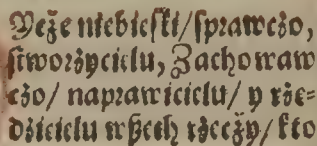 Węże niebieſki/ſprawczo,
ſtworzycielu, Zachowaw
czo/ naprawicielu/ y rzę-
dzicielu wßech rzeczy/ kto